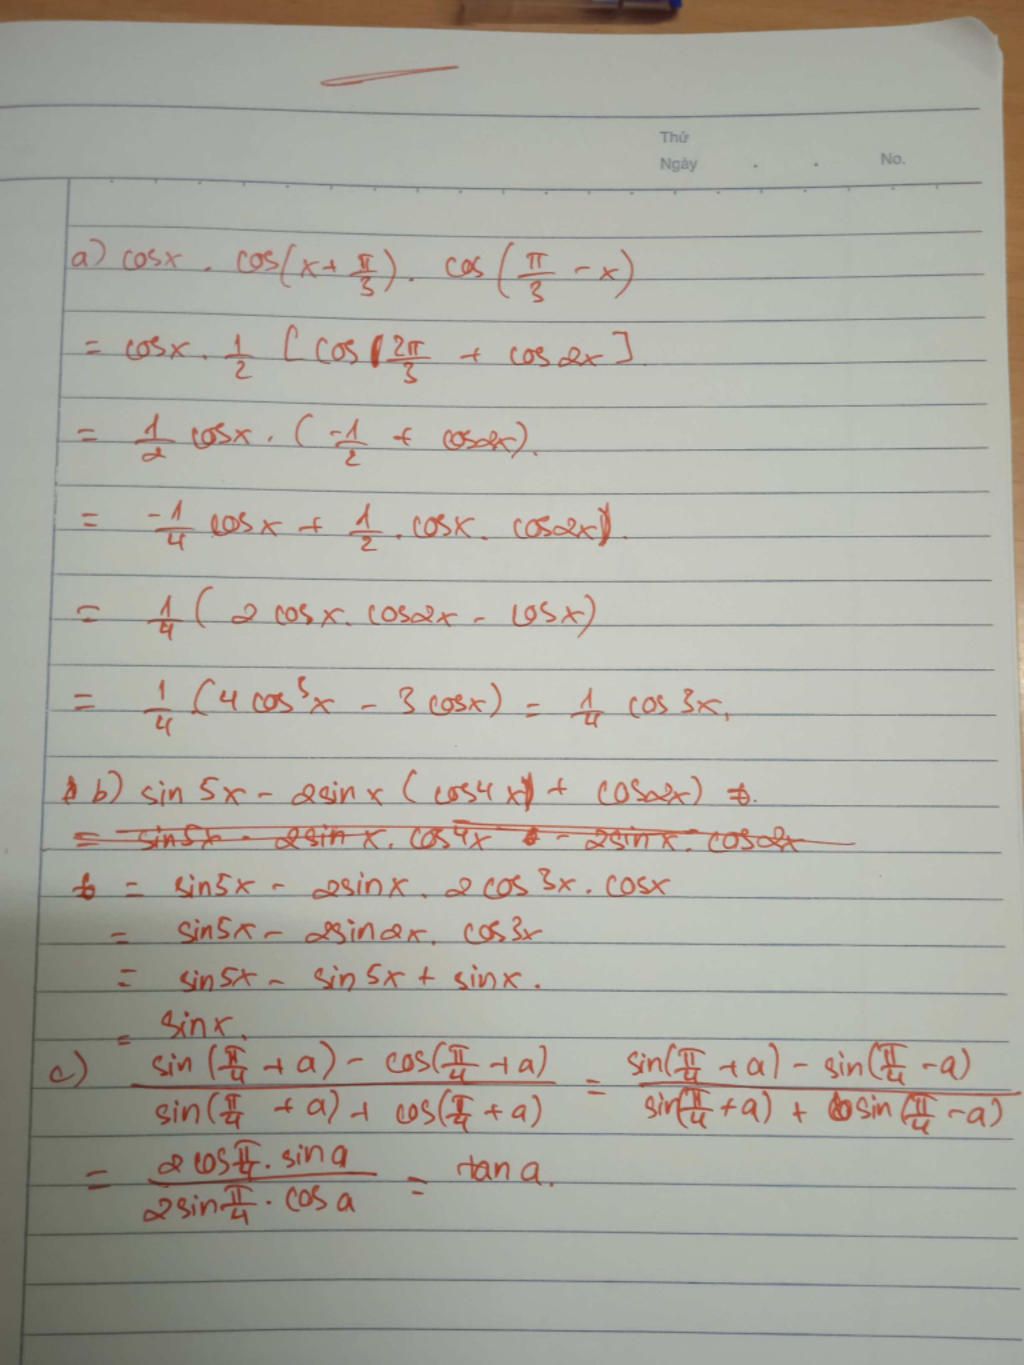 Thứ
Ngày . . No.
a) cosx . cos(x + π/3) . cos(π/3 - x)
= cosx . 1/2 [cos 2π/3 + cos2x]
= 1/2 cosx . (-1/2 + cos2x).
= -1/4 cosx + 1/2 . cosx . cos2x).
= 1/4 (2cosx . cos2x - cosx)
= 1/4 (4cos³x - 3cosx) = 1/4 cos3x.
b) sin5x - 2sinx (cos4x + cos2x)
= sin5x - 2sinx . cos4x - 2sinx . cos2x
= sin5x - 2sinx . 2cos3x . cosx
= sin5x - 2sin2x . cos3x
= sin5x - sin5x + sinx .
= sinx.
c) (sin(π/4 + a) - cos(π/4 + a)) / (sin(π/4 + a) + cos(π/4 + a)) = (sin(π/4 + a) - sin(π/4 - a)) / (sin(π/4 + a) + sin(π/4 - a))
= (2cos π/4 . sina) / (2sin π/4 . cosa) = tana.